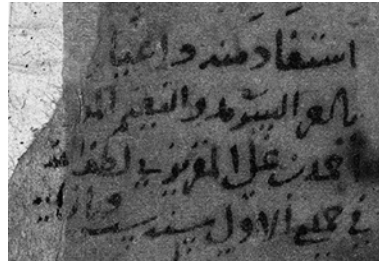 استفاد منه داعيا
بالعز السرمد والنعيم
أحمد بن علي المقريزي لطف الله
في ربيع الاول سنة ست